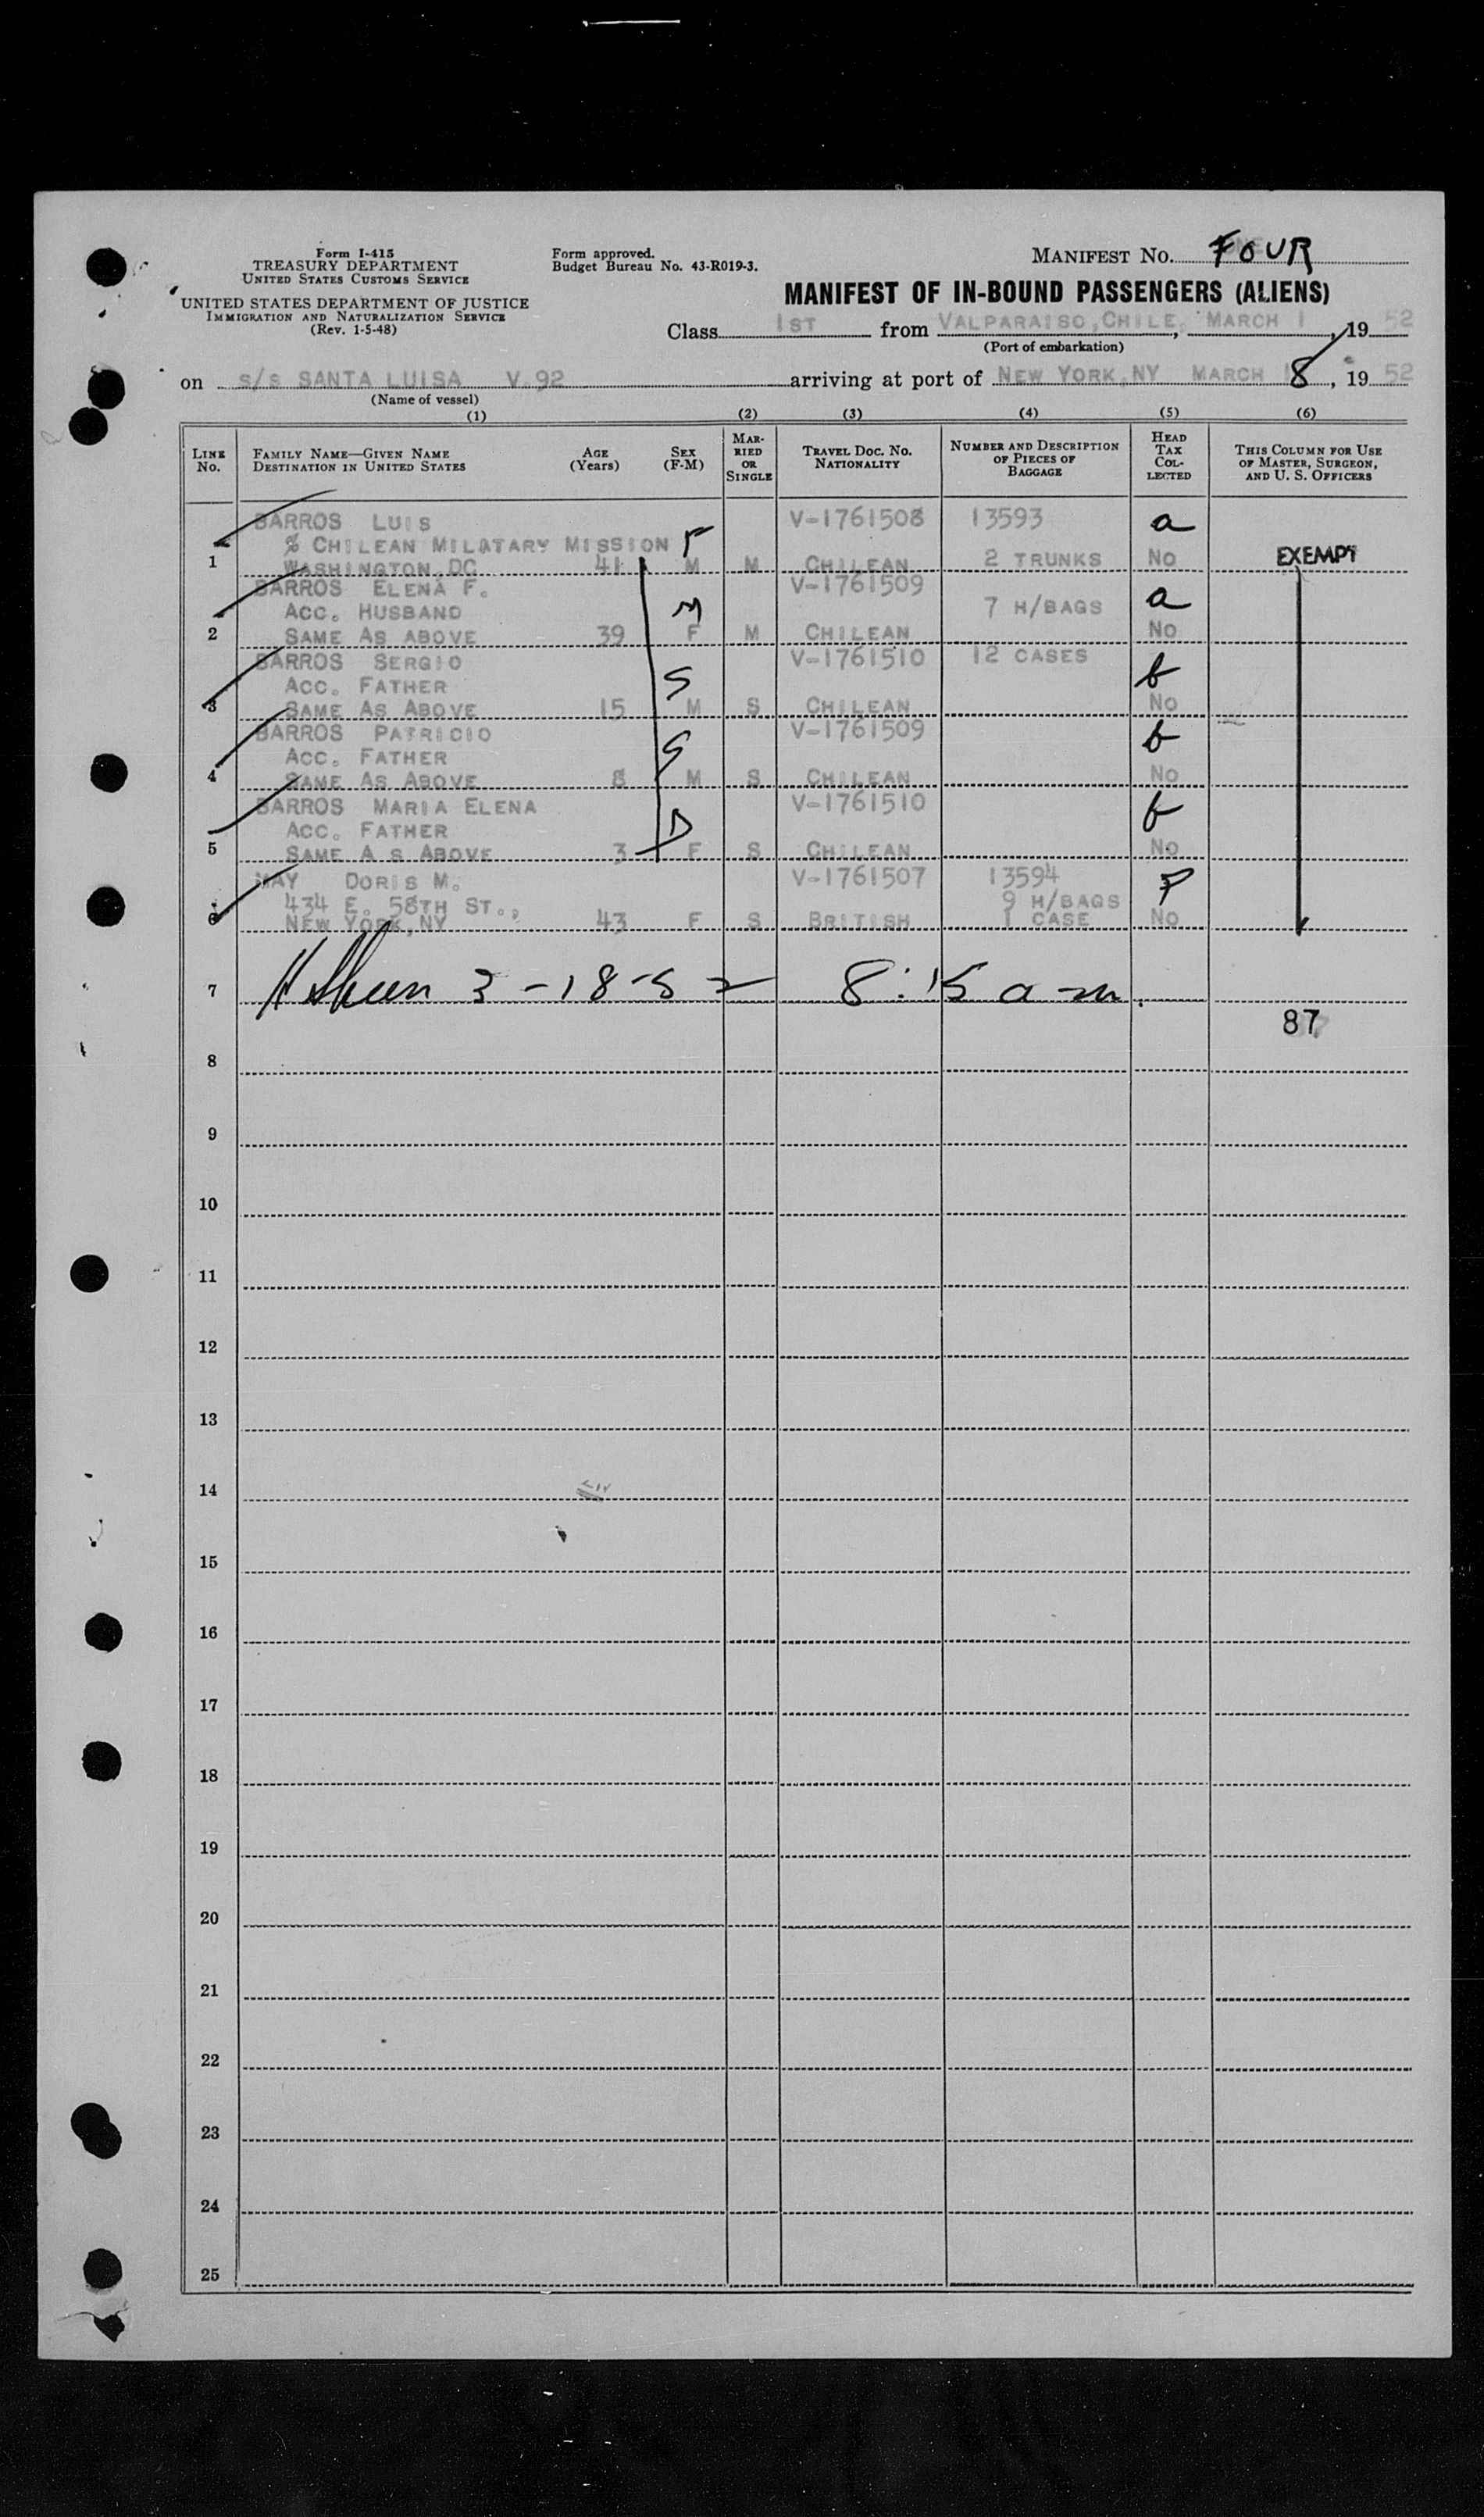 Form I-415
TREASURY DEPARTMENT
UNITED STATES CUSTOMS SERVICE
UNITED STATES DEPARTMENT OF JUSTICE
IMMIGRATION AND NATURALIZATION SERVICE
(Rev. 1-5-48)
Form approved.
Budget Bureau No. 43-R019-3.
MANIFEST NO. FOUR
MANIFEST OF IN-BOUND PASSENGERS (ALIENS)
Class 1ST from VALPARAISO, CHILE, MARCH 1, 1952
(Port of embarkation)
on S/S SANTA LUISA V.92 arriving at port of NEW YORK, NY MARCH 18, 1952
(Name of vessel)
(1) (2) (3) (4) (5) (6)
LINE No. FAMILY NAME—GIVEN NAME DESTINATION IN UNITED STATES AGE (Years) SEX (F-M) MAR-RIED OR SINGLE TRAVEL DOC. NO. NATIONALITY NUMBER AND DESCRIPTION OF PIECES OF BAGGAGE HEAD TAX COL-LECTED THIS COLUMN FOR USE OF MASTER, SURGEON, AND U. S. OFFICERS
BARROS LUIS V-1761508 13593 a
% CHILEAN MILATARY MISSION F
1 WASHINGTON, DC 41 M M CHILEAN 2 TRUNKS NO EXEMPT
BARROS ELENA F. V-1761509
ACC. HUSBAND M 7 H/BAGS a
2 SAME AS ABOVE 39 F M CHILEAN NO
BARROS SERGIO V-1761510 12 CASES
ACC. FATHER S b
3 SAME AS ABOVE 15 M S CHILEAN NO
BARROS PATRICIO V-1761509 b
ACC. FATHER S
4 SAME AS ABOVE 8 M S CHILEAN NO
BARROS MARIA ELENA V-1761510 b
ACC. FATHER D
5 SAME A S ABOVE 3 F S CHILEAN NO
MAY DORIS M. V-1761507 13594
434 E. 58TH ST., 9 H/BAGS
6 NEW YORK, NY 43 F S BRITISH 1 CASE NO
7 3-18-52 8:15 a m.
87
8
9
10
11
12
13
14
15
16
17
18
19
20
21
22
23
24
25